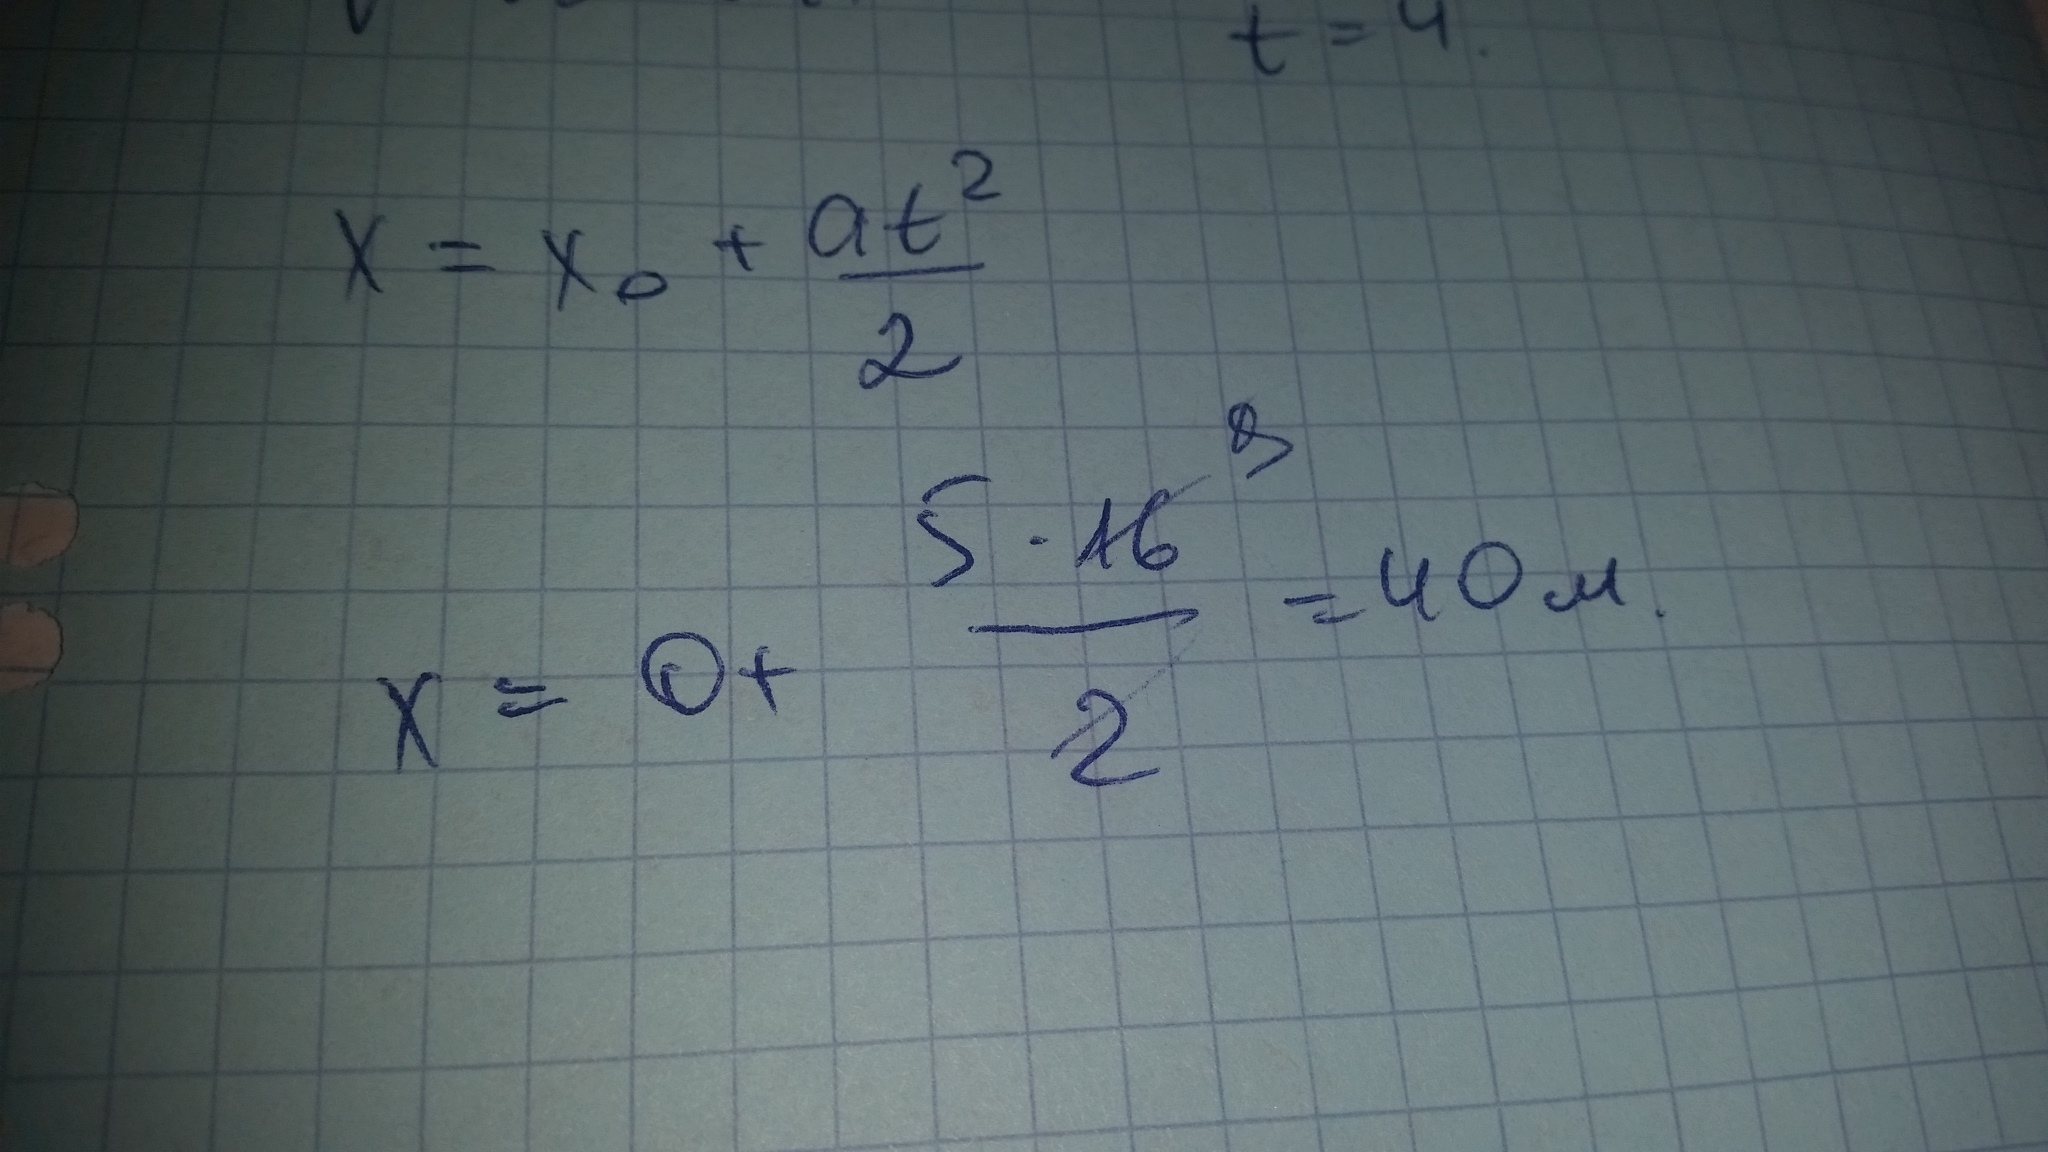 t = 4.
x = x₀ + at²/2
x = 0 + 5 · 16 8/2 = 40 м.